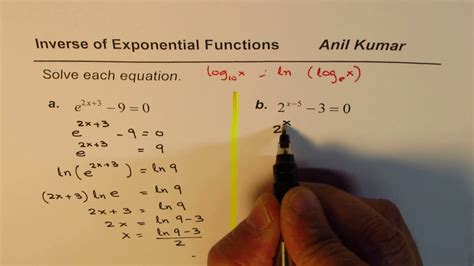 Inverse of Exponential Functions Anil Kumar
Solve each equation. log₁₀x – ln (logₑx)
a. e^{2x+3} − 9 = 0
e^{2x+3} − 9 = 0
e^{2x+3} = 9
ln(e^{2x+3}) = ln 9
(2x+3) ln e = ln 9
2x+3 = ln 9
2x = ln 9 − 3
x = \frac{ln 9 − 3}{2}
b. 2^{x−5} − 3 = 0
2^x